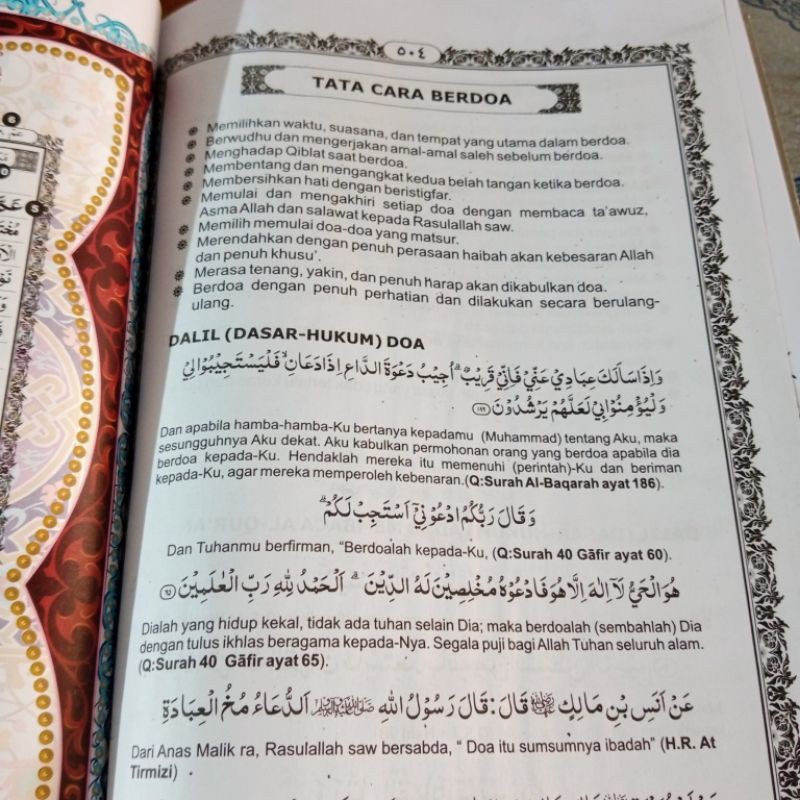 ٥٠٤
TATA CARA BERDOA
Memilihkan waktu, suasana, dan tempat yang utama dalam berdoa.
Berwudhu dan mengerjakan amal-amal saleh sebelum berdoa.
Menghadap Qiblat saat berdoa.
Membentang dan mengangkat kedua belah tangan ketika berdoa.
Membersihkan hati dengan beristigfar.
Memulai dan mengakhiri setiap doa dengan membaca ta'awuz,
Asma Allah dan salawat kepada Rasulallah saw.
Memilih memulai doa-doa yang matsur.
Merendahkan dengan penuh perasaan haibah akan kebesaran Allah
dan penuh khusu'.
Merasa tenang, yakin, dan penuh harap akan dikabulkan doa.
Berdoa dengan penuh perhatian dan dilakukan secara berulang-
ulang.
DALIL (DASAR-HUKUM) DOA
وَاِذَا سَاَلَكَ عِبَادِيْ عَنِّيْ فَاِنِّيْ قَرِيْبٌ ۗ اُجِيْبُ دَعْوَةَ الدَّاعِ اِذَا دَعَانِ ۙ فَلْيَسْتَجِيْبُوْا لِيْ
وَلْيُؤْمِنُوْا بِيْ لَعَلَّهُمْ يَرْشُدُوْنَ ١٨٦
Dan apabila hamba-hamba-Ku bertanya kepadamu (Muhammad) tentang Aku, maka
sesungguhnya Aku dekat. Aku kabulkan permohonan orang yang berdoa apabila dia
berdoa kepada-Ku. Hendaklah mereka itu memenuhi (perintah)-Ku dan beriman
kepada-Ku, agar mereka memperoleh kebenaran.(Q:Surah Al-Baqarah ayat 186).
وَقَالَ رَبُّكُمُ ادْعُوْنِيْٓ اَسْتَجِبْ لَكُمْ ۗ
Dan Tuhanmu berfirman, “Berdoalah kepada-Ku, (Q:Surah 40 Gāfir ayat 60).
هُوَ الْحَيُّ لَآ اِلٰهَ اِلَّا هُوَ فَادْعُوْهُ مُخْلِصِيْنَ لَهُ الدِّيْنَ ۗ اَلْحَمْدُ لِلّٰهِ رَبِّ الْعٰلَمِيْنَ ٦٥
Dialah yang hidup kekal, tidak ada tuhan selain Dia; maka berdoalah (sembahlah) Dia
dengan tulus ikhlas beragama kepada-Nya. Segala puji bagi Allah Tuhan seluruh alam.
(Q:Surah 40 Gāfir ayat 65).
عَنْ اَنَسِ بْنِ مَالِكٍ قَالَ : قَالَ رَسُوْلُ اللهِ ﷺ اَلدُّعَاءُ مُخُّ الْعِبَادَةِ
Dari Anas Malik ra, Rasulallah saw bersabda, “ Doa itu sumsumnya ibadah” (H.R. At
Tirmizi)